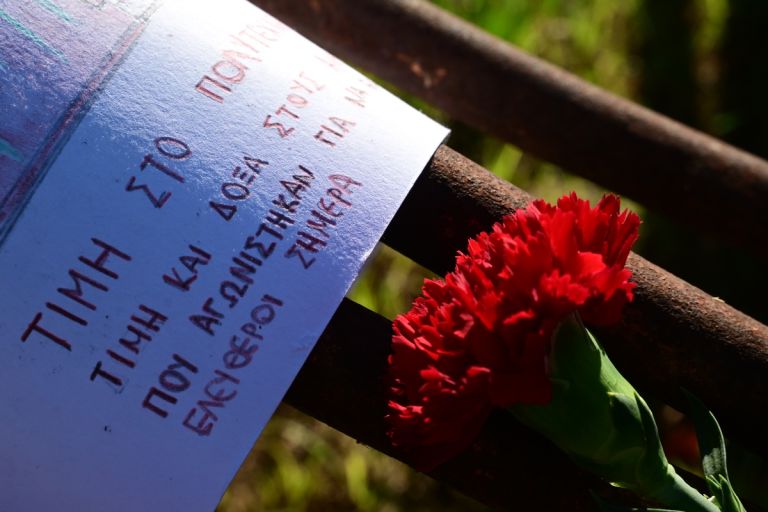 ΤΙΜΗ ΣΤΟ
ΤΙΜΗ ΚΑΙ ΔΟΞΑ ΣΤΟΥΣ
ΠΟΥ ΑΓΩΝΙΣΤΗΚΑΝ ΓΙΑ ΝΑ
ΕΛΕΥΘΕΡΟΙ ΣΗΜΕΡΑ